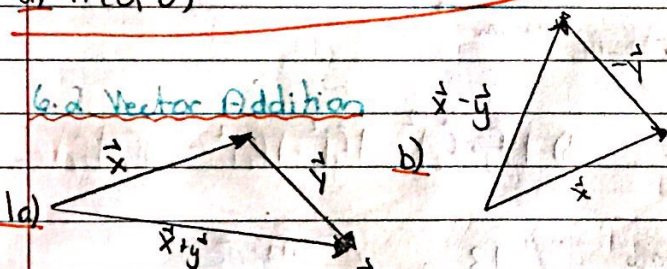 6.2 Vector Addition
1a)
x⃗
y⃗
x⃗+y⃗
b)
x⃗ - y⃗
-y⃗
x⃗